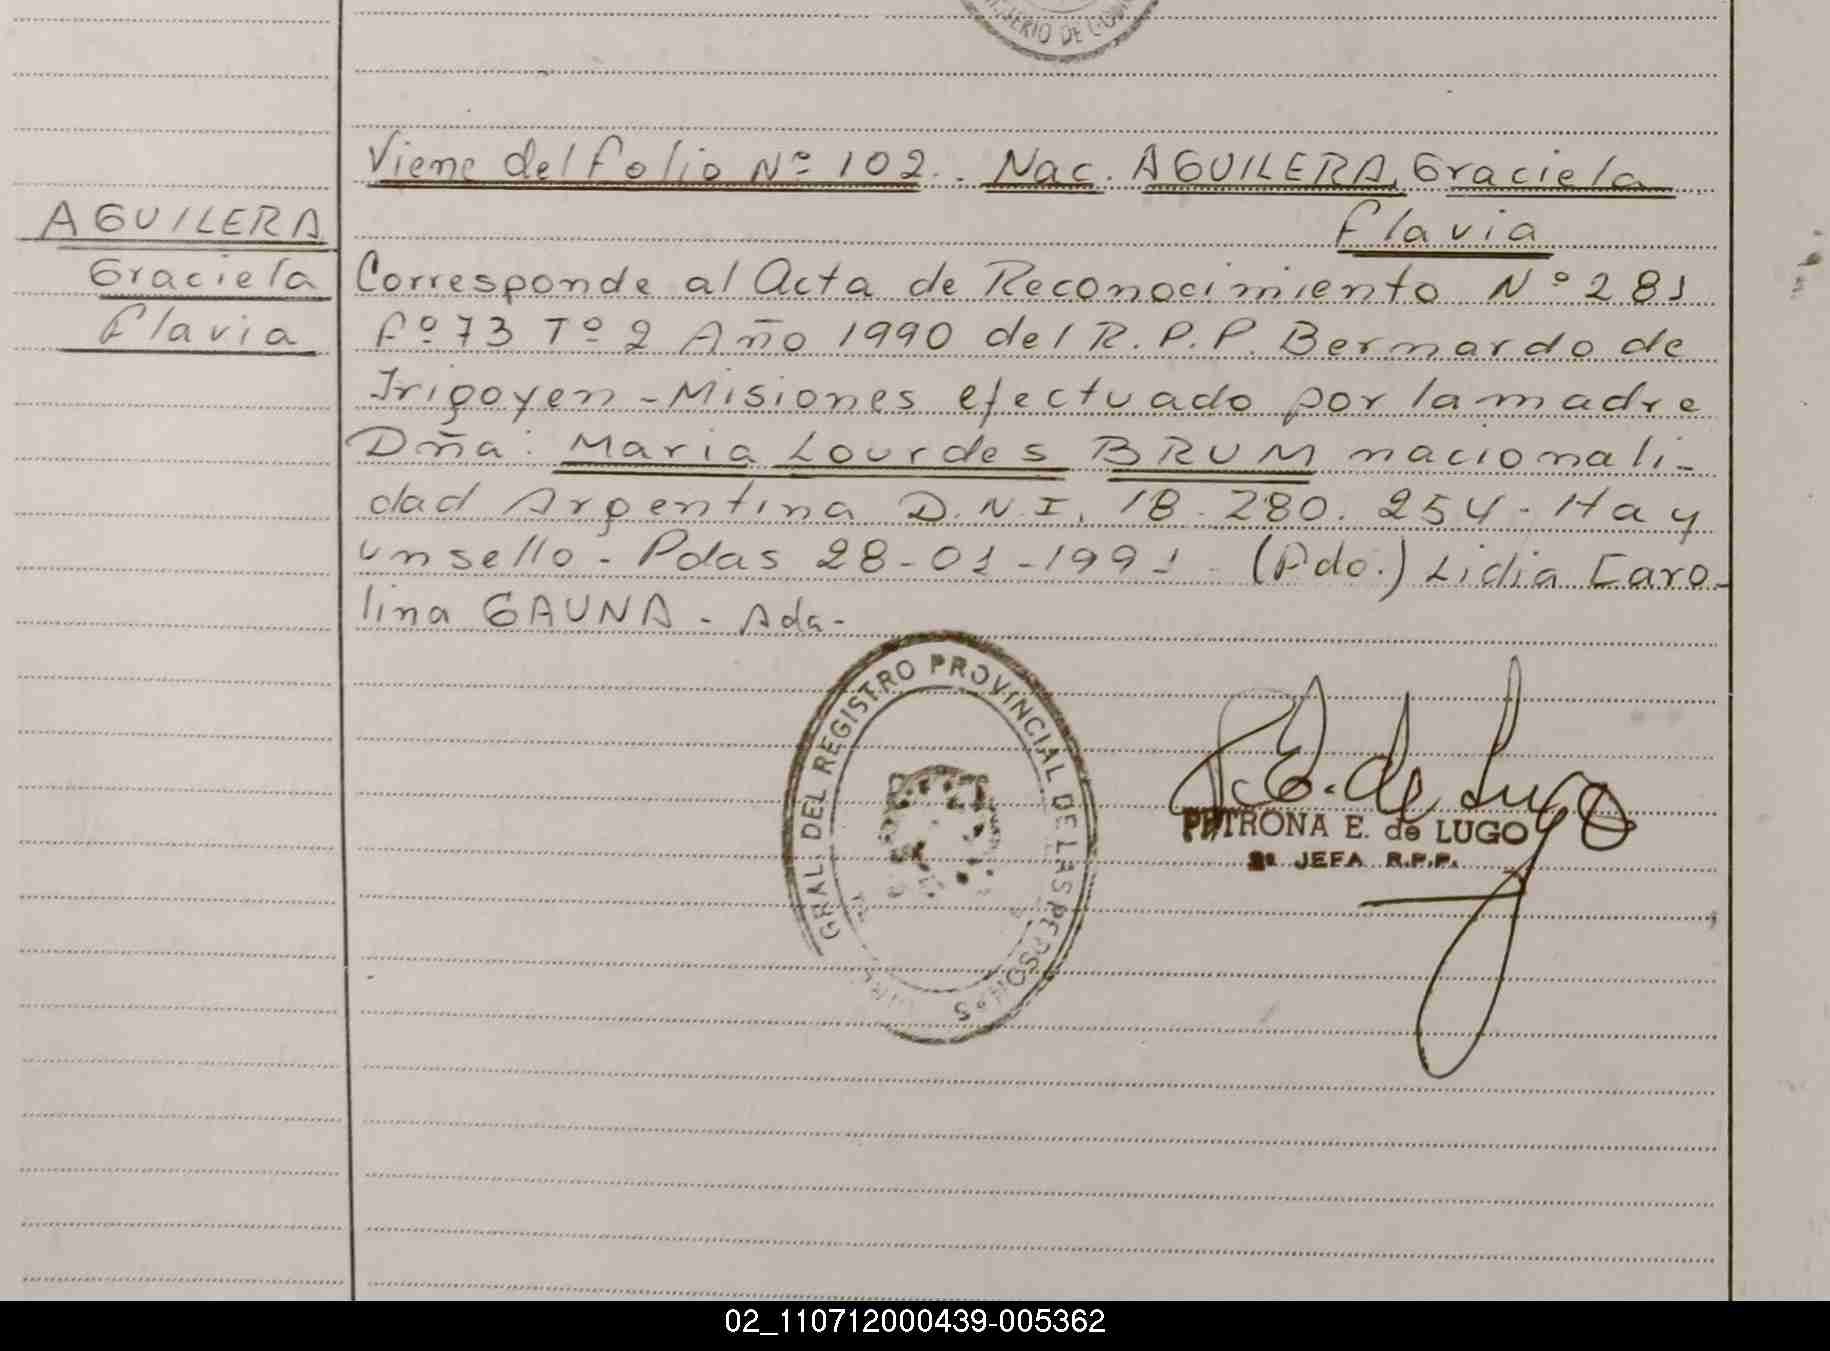 Viene del folio Nº 102. Nac. AGUILERA, Graciela
Flavia
AGUILERA
Graciela
Flavia
Corresponde al Acta de Reconocimiento Nº 281
Fº 73 Tº 2 Año 1990 del R.P.P. Bernardo de
Irigoyen - Misiones efectuado por la madre
Dña: Maria Lourdes BRUM nacionali-
dad Argentina D.N.I. 18.280.254. Hay
un sello. Pdas 28-01-1991. (Fdo.) Lidia Caro-
lina GAUNA. Ada-
GRAL. DEL REGISTRO PROVINCIAL DE LAS PERSONAS
P. E. de Lugo
PETRONA E. de LUGO
JEFA R.P.P.
02_110712000439-005362